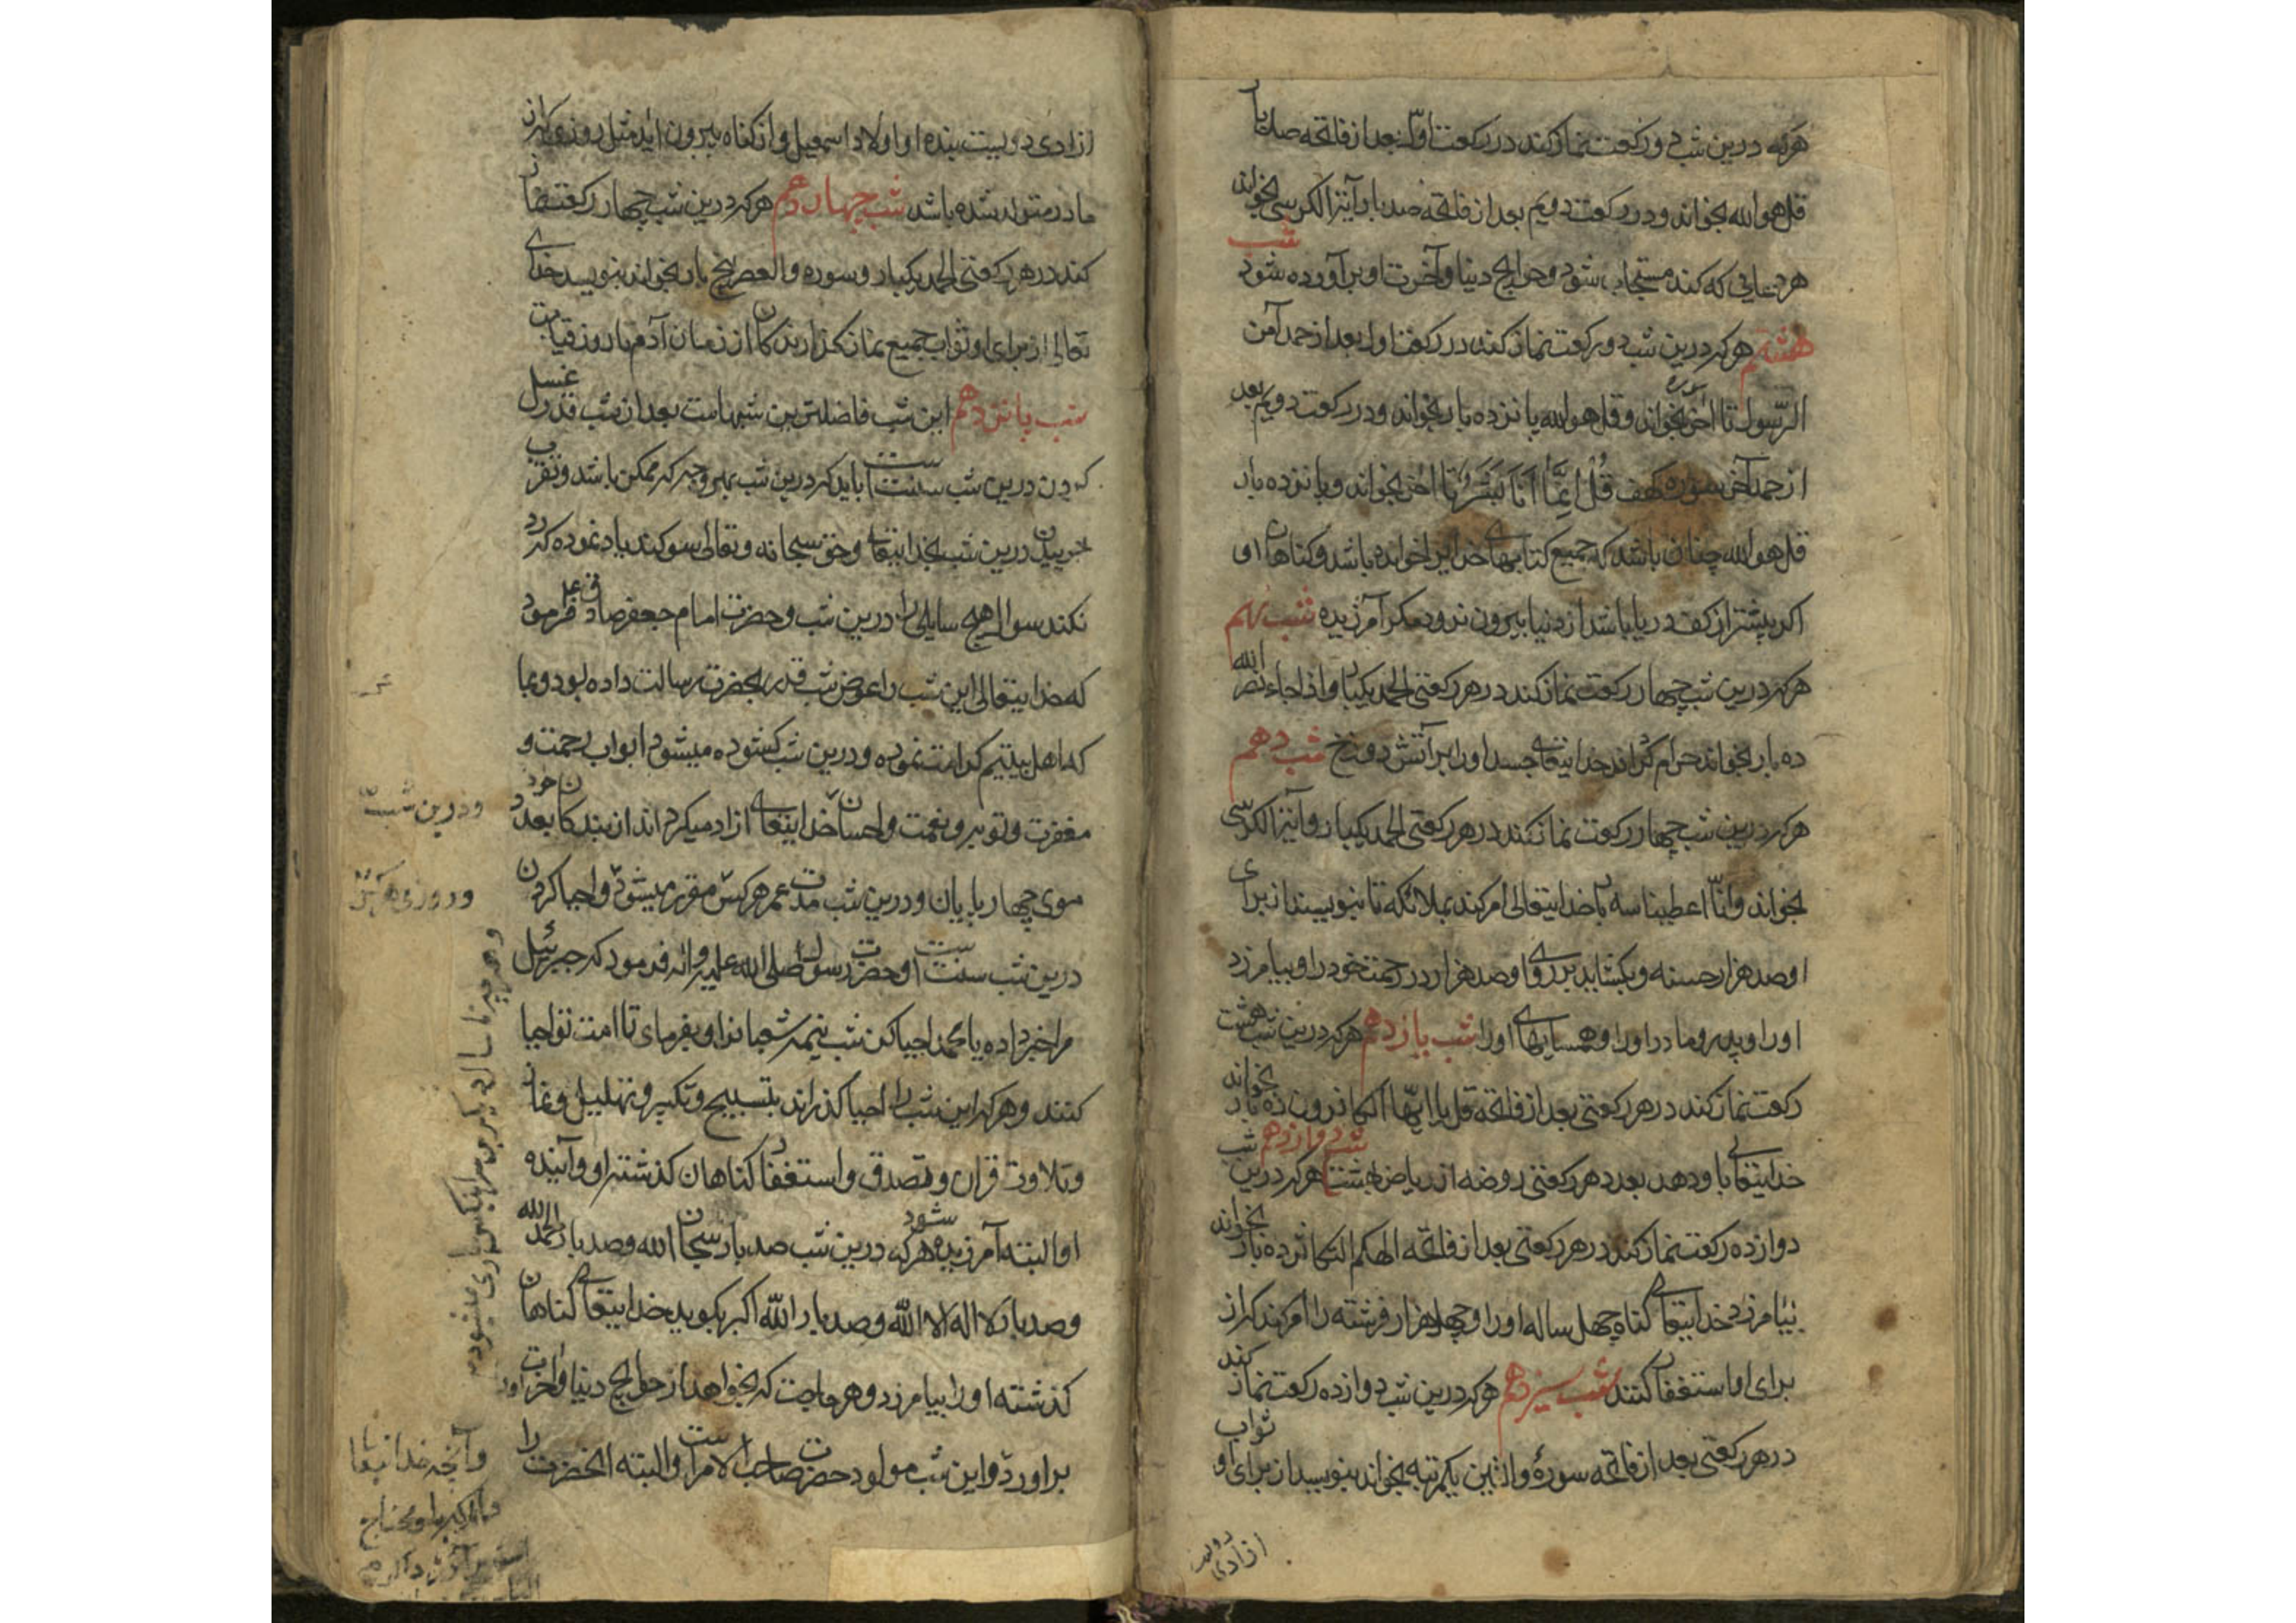 هرکه درین شب دو رکعت نماز کند در رکعت اول بعد از فاتحه صد بار
قل هو الله بخواند و در رکعت دویم بعد از فاتحه صد بار آیة الکرسی بخواند
هر دعایی که کند مستجاب شود و حوایج دنیا و آخرت او برآورده شود شب
هشتم هرکه درین شب دو رکعت نماز کند در رکعت اول بعد از حمد آمن
الرّسول تا آخر سوره بخواند و قل هو الله پانزده بار بخواند و در رکعت دویم بعد
از حمد آخر سوره کهف قُلْ اِنَّمَا اَنَا بَشَرٌ تا آخر بخواند و پانزده بار
قل هو الله چنان باشد که جمیع کتابهای خدایرا خوانده باشد و کناهان او
اکر بیشتر از کف دریا باشد از دنیا بیرون نرود مکر آمرزیده شب نهم
هرکه درین شب چهار رکعت نماز کند در هر رکعتی الحمد یکبار و اذا جاء نصر الله
ده بار بخواند حرام کرداند خدایتعالی جسد او را بر آتش دوزخ شب دهم
هرکه درین شب چهار رکعت نماز کند در هر رکعتی الحمد یکبار و آیة الکرسی
بخواند و انّا اعطینا سه بار خدایتعالی امر کند بملائکه تا بنویسند از برای
او صد هزار حسنه و بکشاید بر روی او صد هزار در رحمت خود را و بیامرزد
او را و پدر و مادر او را و همسایهای او را شب یازدهم هرکه درین شب هشت
رکعت نماز کند در هر رکعتی بعد از فاتحه قل یا ایّها الکافرون ده بار بخواند
خدایتعالی باو دهد بعدد هر رکعتی روضه از ریاض بهشت شب دوازدهم هرکه درین شب
دوازده رکعت نماز کند در هر رکعتی بعد از فاتحه الهکم التکاثر ده بار بخواند
بیامرزد خدایتعالی کناه چهل ساله او را و چهل هزار فرشته را امر کند که از
برای او استغفار کنند شب سیزدهم هرکه درین شب دوازده رکعت نماز کند
در هر رکعتی بعد از فاتحه سورهٔ والتین یکمرتبه بخواند بنویسد از برای او ثواب
ازادی دویست
ازادی دویست بنده از اولاد اسمعیل و از کناه بیرون اید مثل روزی که از
مادر متولد شده باشد شب چهاردهم هرکه درین شب چهار رکعت نماز
کند در هر رکعتی الحمد یکبار و سوره والعصر پنج بار بخواند بنویسد خدای
تعالی از برای او ثواب جمیع نماز کذارندکان از زمان آدم تا روز قیامت
شب پانزدهم این شب فاضلترین شبهاست بعد از شب قدر غسل
کردن درین شب سنت است باید که درین شب بهر وجه که ممکن باشد و تقرب
جوییدن درین شب بخدایتعالی و حق سبحانه و تعالی سوکند یاد نموده که رد
نکند سوال هیچ سایلی را درین شب و حضرت امام جعفر صادق ع فرمود
که خدایتعالی این شب را عوض شب قدر بحضرت رسالت داده بود و بما
که اهل بیتیم کرامت نموده و درین شب کشوده میشود ابواب رحمت و
مغفرت و توبه و نعمت و احسان خدایتعالی ازاد میکرداند از بندکان خود بعدد
موی چهارپایان و درین شب مدت عمر هرکس مقرر میشود و احیا کردن
درین شب سنت است و حضرت رسول صلی الله علیه و اله فرمود که جبرئیل
مرا خبر داده یا محمد احیا کن شب نیمه شعبان را و بفرمای تا امت تو احیا
کنند و هرکه این شب را احیا کذراند بتسبیح و تکبیر و تهلیل و نماز
و تلاوت قران و تصدق و استغفار کناهان کذشته او و آینده
او البته آمرزیده شود هرکه درین شب صد بار سبحان الله و صد بار الحمد لله
و صد بار لا اله الا الله و صد بار الله اکبر بکوید خدایتعالی کناهان
کذشته او را بیامرزد و هر حاجت که بخواهد از حوایج دنیا و اخرت او
براورد و این شب مولود حضرت صاحب الامر است و البته انحضرت را
و درین شب
و روزی هرکس
وانچه خدایتعالی